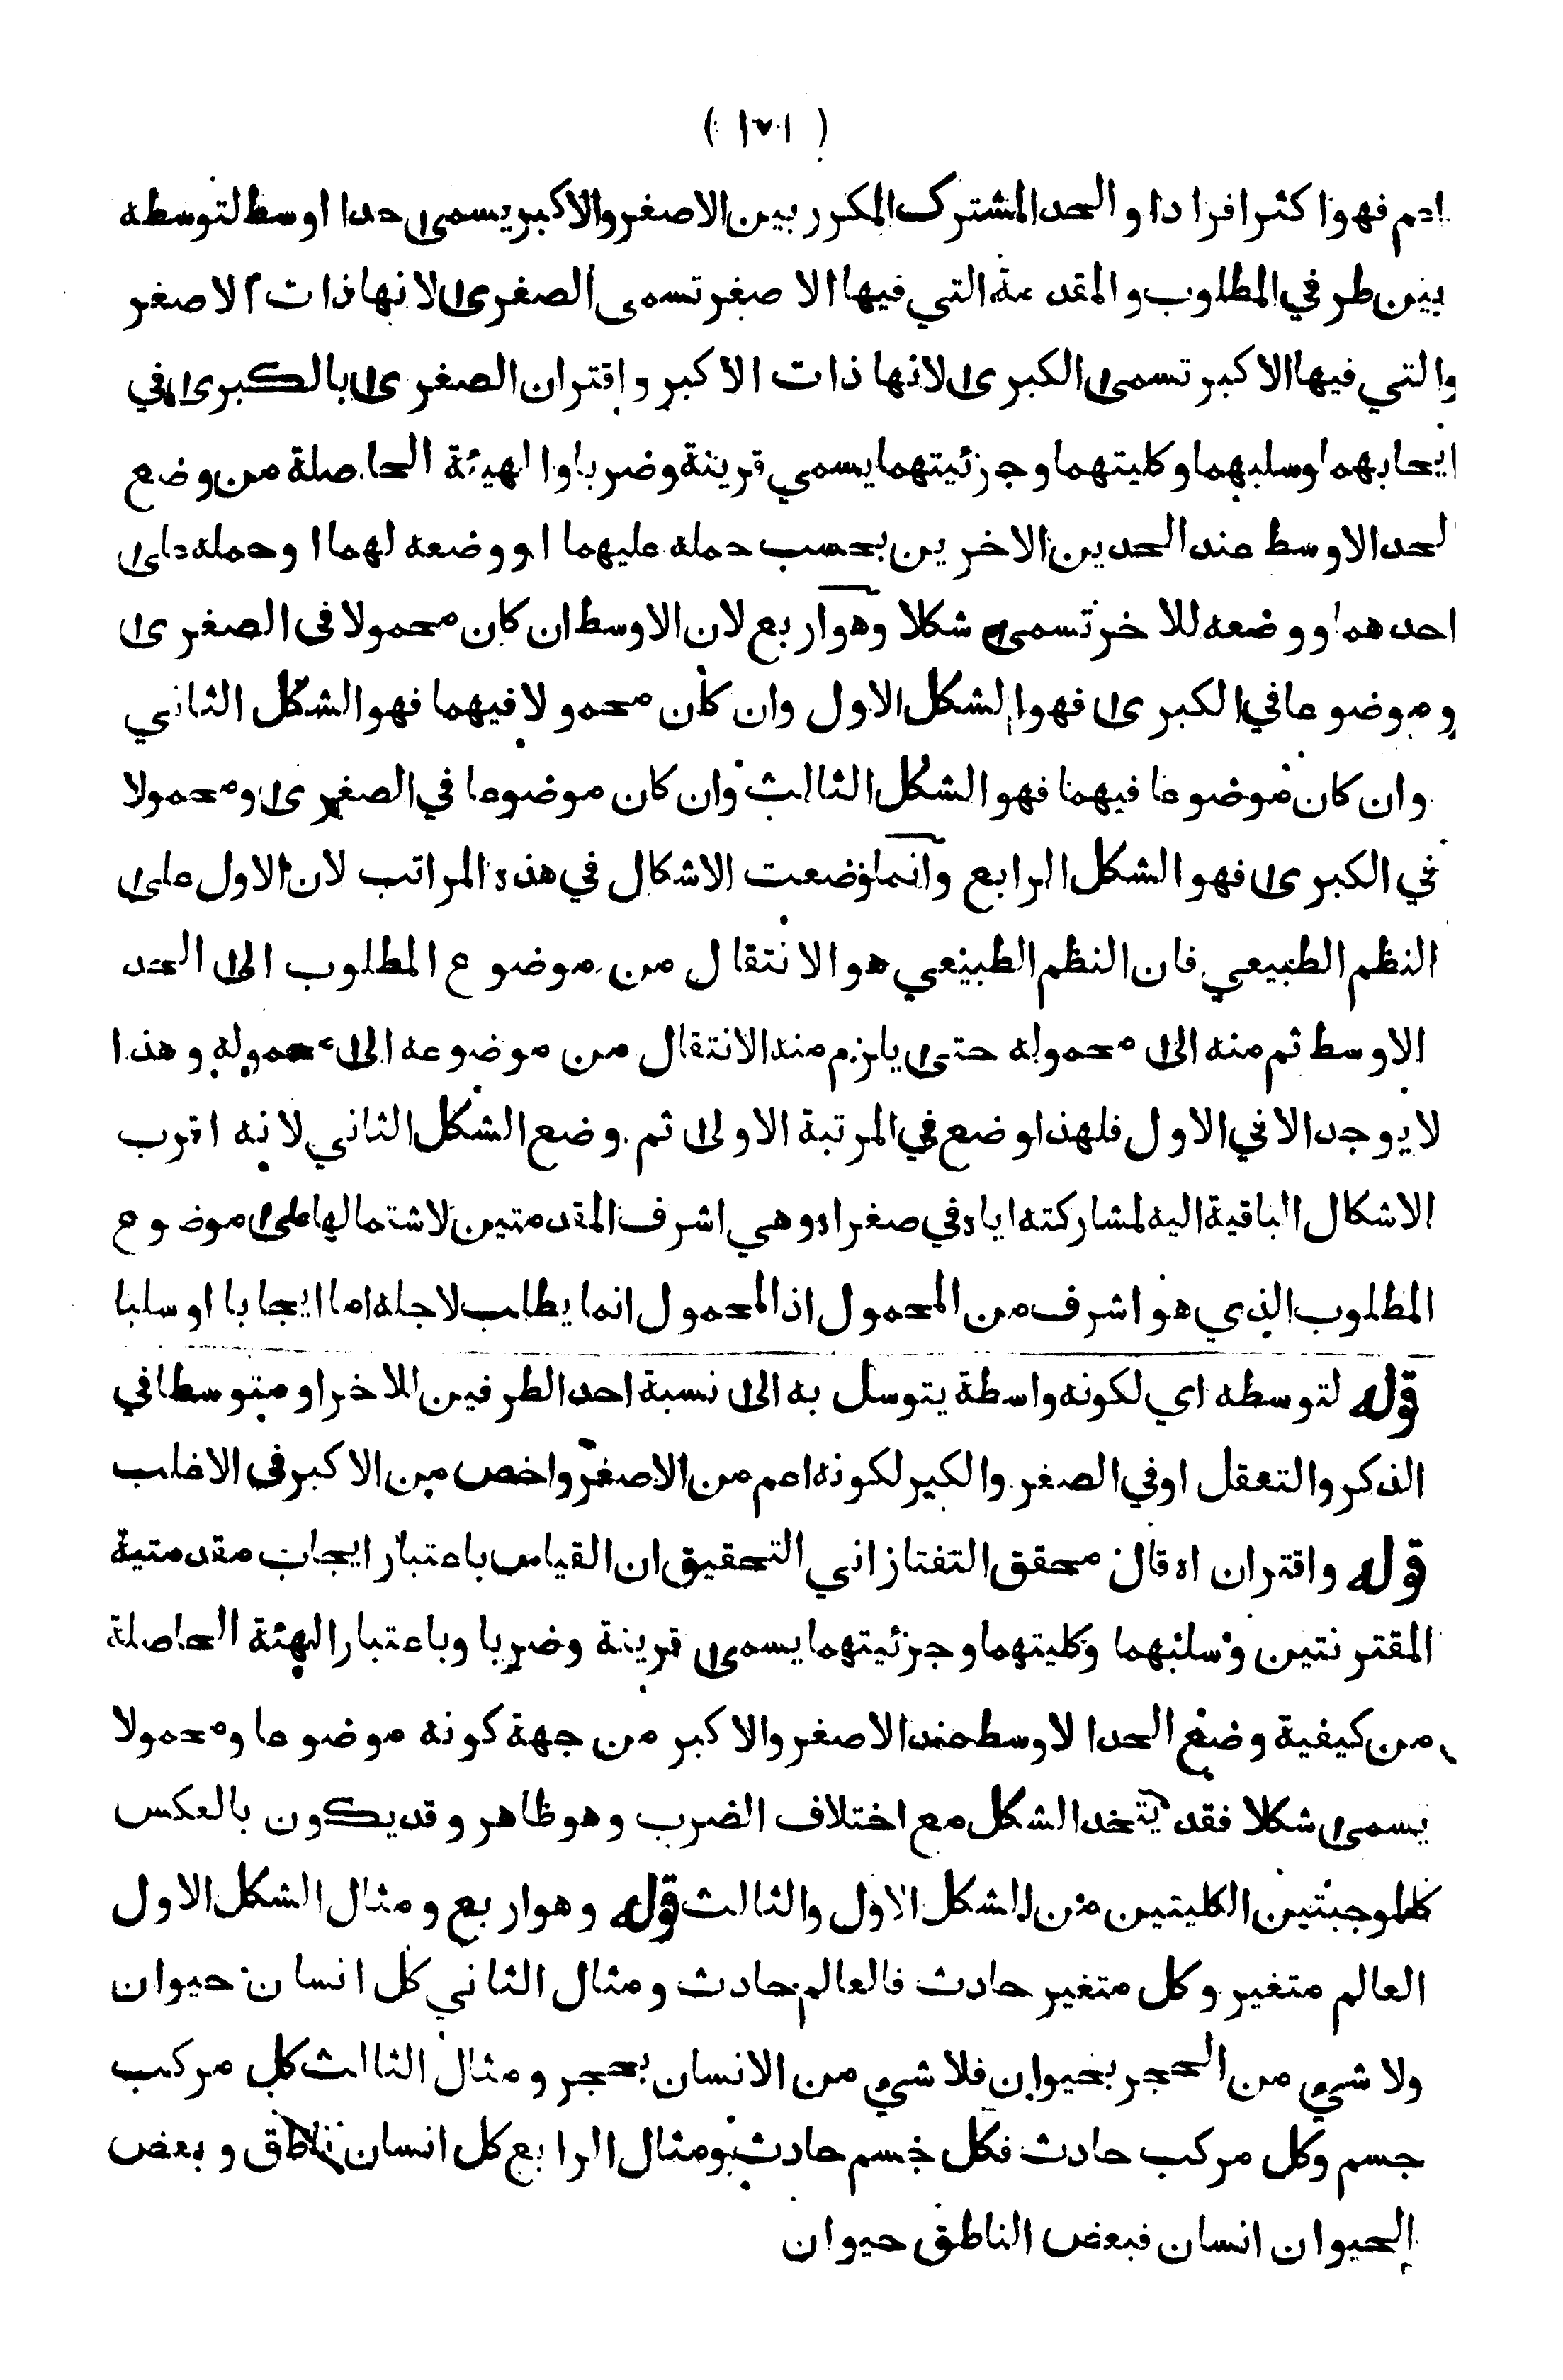 ( ١٧١ )
اعم فهو اكثر افرادا و الحد المشترك المكرر بين الاصغر والاكبر يسمى حدا اوسط لتوسطه
بين طرفي المطلوب و المقدمة التي فيها الاصغر تسمى الصغرى لانها ذات الاصغر
والتي فيها الاكبر تسمى الكبرى لانها ذات الاكبر و اقتران الصغرى بالكبرى في
ايجابهما وسلبهما وكليتهما وجزئيتهما يسمي قرينة وضربا و الهيئة الحاصلة من وضع
لحد الاوسط عند الحدين الاخرين بحسب حمله عليهما او وضعه لهما او حمله على
احدهما و وضعه للاخر تسمى شكلا وهو اربع لان الاوسط ان كان محمولا في الصغرى
و موضوعا في الكبرى فهو الشكل الاول وان كان محمولا فيهما فهو الشكل الثاني
وان كان موضوعا فيهما فهو الشكل الثالث وان كان موضوعا في الصغرى ومحمولا
في الكبرى فهو الشكل الرابع وانما وضعت الاشكال في هذه المراتب لان الاول على
النظم الطبيعي فان النظم الطبيعي هو الانتقال من موضوع المطلوب الى الحد
الاوسط ثم منه الى محموله حتى يلزم منه الانتقال من موضوعه الى محموله وهذا
لا يوجد الا في الاول فلهذا وضع في المرتبة الاولى ثم وضع الشكل الثاني لانه اقرب
الاشكال الباقية اليه لمشاركته اياه في صغراه وهي اشرف المقدمتين لاشتمالها على موضوع
المطلوب الذي هو اشرف من المحمول اذ المحمول انما يطلب لاجله اما ايجابا او سلبا
قوله لتوسطه اي لكونه واسطة يتوسل به الى نسبة احد الطرفين للاخر او متوسطا في
الذكر والتعقل او في الصغر والكبر لكونه اعم من الاصغر واخص من الاكبر في الاغلب
قوله واقتران اه قال محقق التفتازاني التحقيق ان القياس باعتبار ايجاب مقدمتيه
المقترنتين وسلبهما وكليتهما وجزئيتهما يسمى قرينة وضربا وباعتبار الهئة الحاصلة
من كيفية وضع الحد الاوسط عند الاصغر والاكبر من جهة كونه موضوعا ومحمولا
يسمى شكلا فقد يتحد الشكل مع اختلاف الضرب وهو ظاهر وقد يكون بالعكس
كالموجبتين الكليتين من الشكل الاول والثالث قوله وهو اربع و مثال الشكل الاول
العالم متغير وكل متغير حادث فالعالم حادث و مثال الثاني كل انسان حيوان
ولا شيء من الحجر بحيوان فلا شيء من الانسان بحجر ومثال الثالث كل مركب
جسم وكل مركب حادث فكل جسم حادث ومثال الرابع كل انسان ناطق و بعض
الحيوان انسان فبعض الناطق حيوان